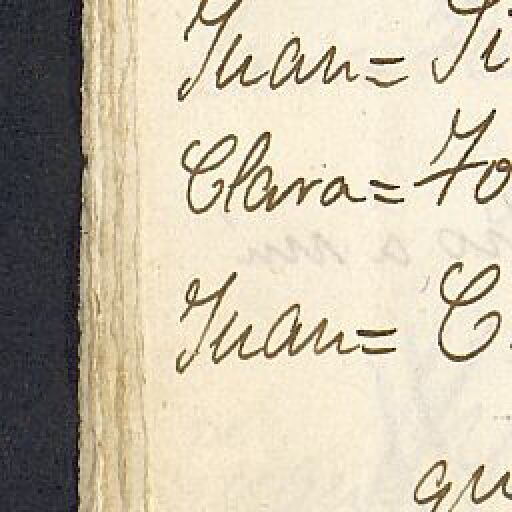 Juan= Si
Clara= Fo
Juan= C
qu